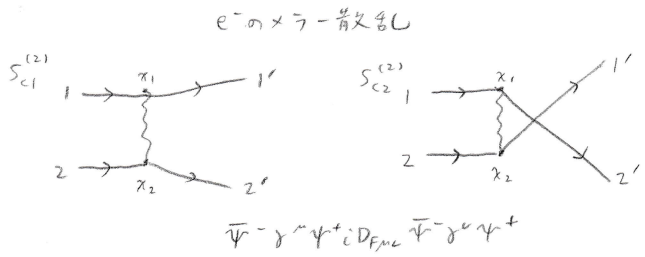 e⁻のメラー散乱
S_{c1}^{(2)} 1 x₁ 1'
2 x₂ 2'
S_{c2}^{(2)} 1 x₁ 1'
2 x₂ 2'
ψ̄⁻γ^μψ⁺iD_{Fμν}ψ̄⁻γ^νψ⁺